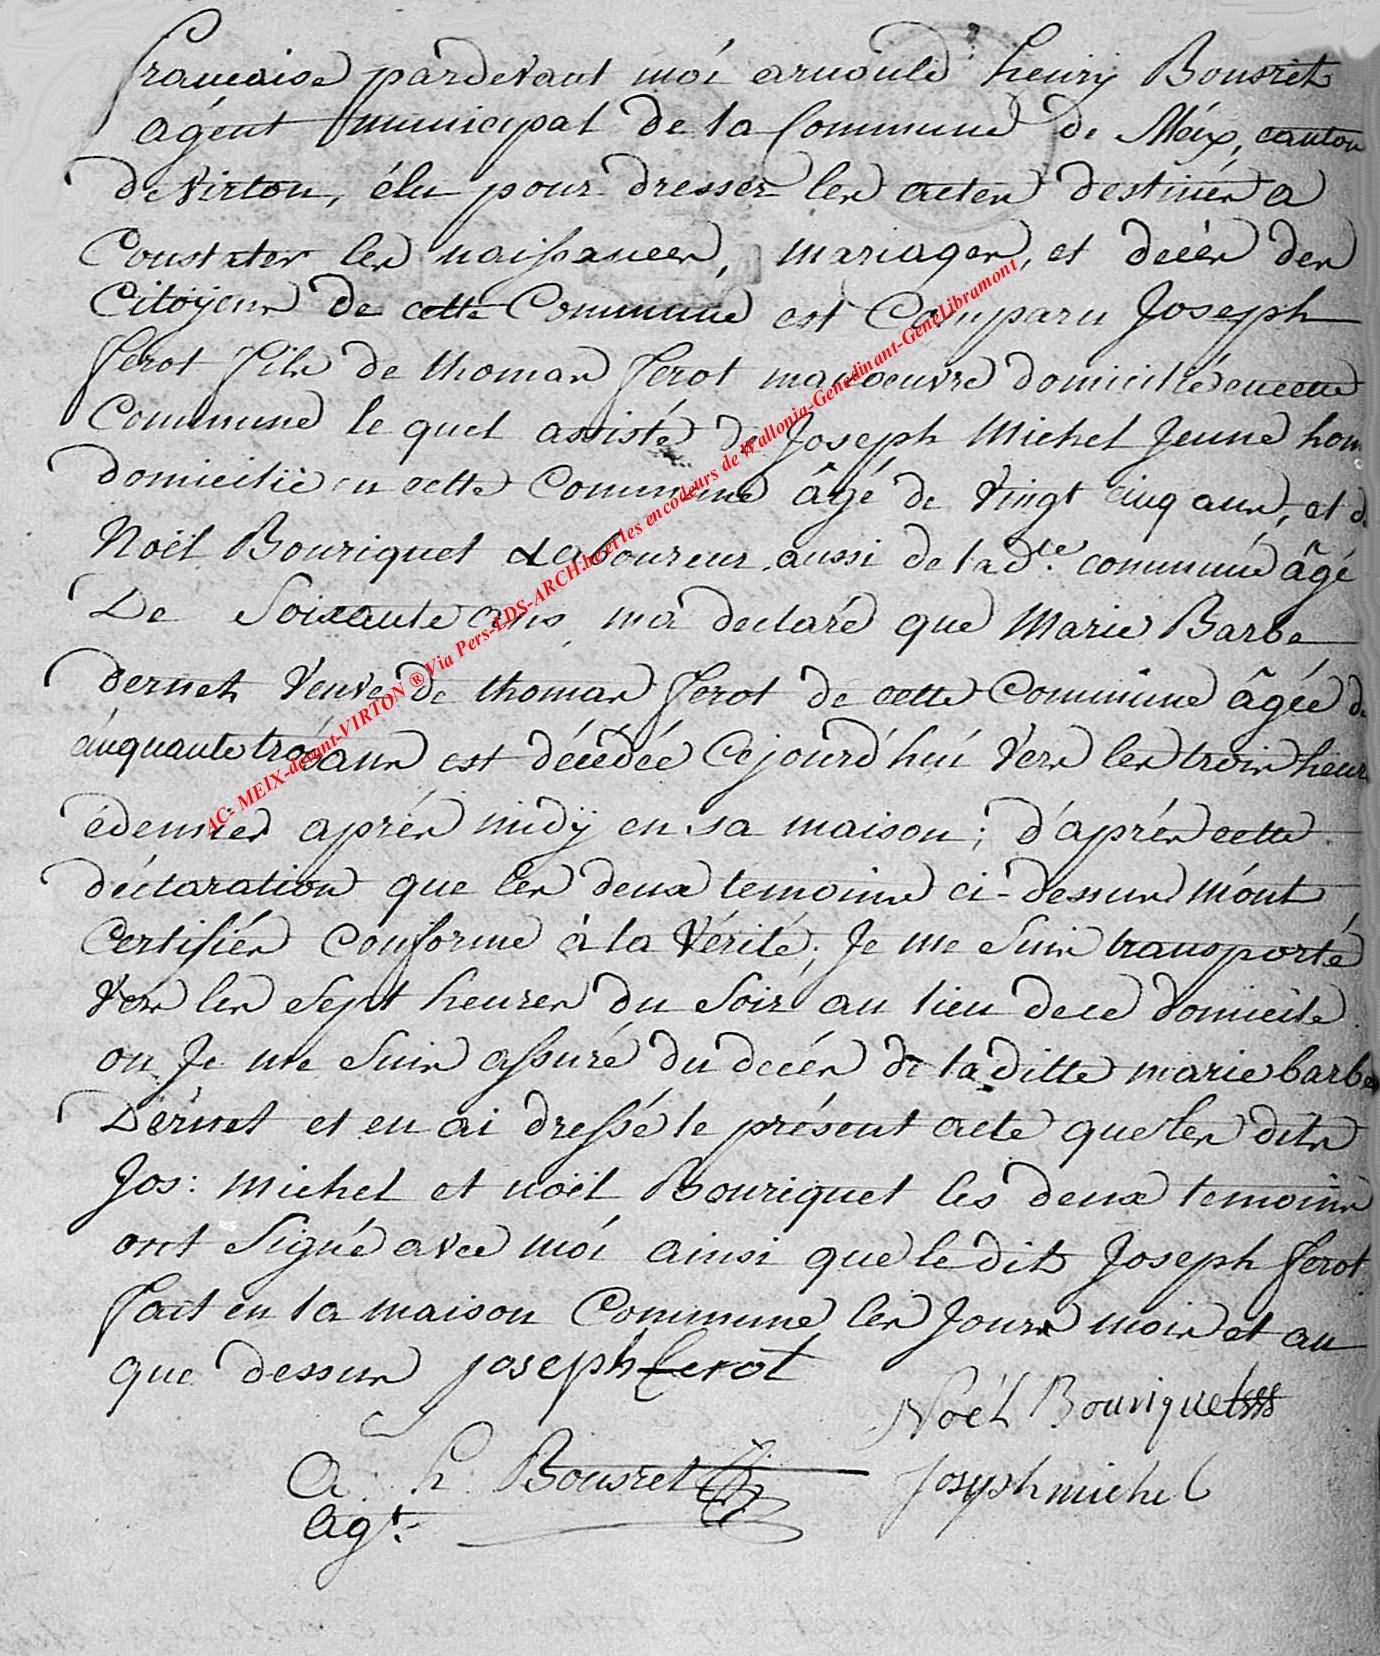 francaise pardevant moi arnould henry Bousret
agent municipal de la Commune de Méix, canton
de Virton, élu pour dresser les actes destinés a
Constater les naissances, mariages, et decès des
Citoÿens de cette Commune est Comparu Joseph
ferot fils de thomas ferot manoeuvre domicilié en cette
Commune le quel assisté de Joseph Michel Jeune hom
domicilié en cette Commune âgé de Vingt cinq ans, et d
Noël Bouriquet Laboureur aussi de la d.te commune âgé
De Soixante ans ma declaré que Marie Barbe
dernet Veuve de thomas ferot de cette Commune âgée d
cinquante trois ans est décédée Cejourd'hui Vers les trois heur
édemies après midÿ en sa maison; d'après cette
déclaration que les deux temoins ci-dessus m'ont
Certifiés Conforme à la Vérité; Je me Suis transporté
Vers les Sept heures du Soir au lieu de ce domicile
ou Je me Suis assuré du decés de la ditte marie barbe
Dernet et en ai dressé le présent acte que les dits
Jos: Michel et noël Bouriquet les deux temoins
ont Signé avec moi ainsi que le dit Joseph ferot
fait en la maison Commune les Jours mois et an
que dessus joseph ferot
Noél Bouriquet
A. h. Bousret
Joseph michel
Agt.
AC- MEIX-devant-VIRTON ® Via Pers-LDS-ARCH.be et les encodeurs de Wallonia-Genedinant-GeneLibramont